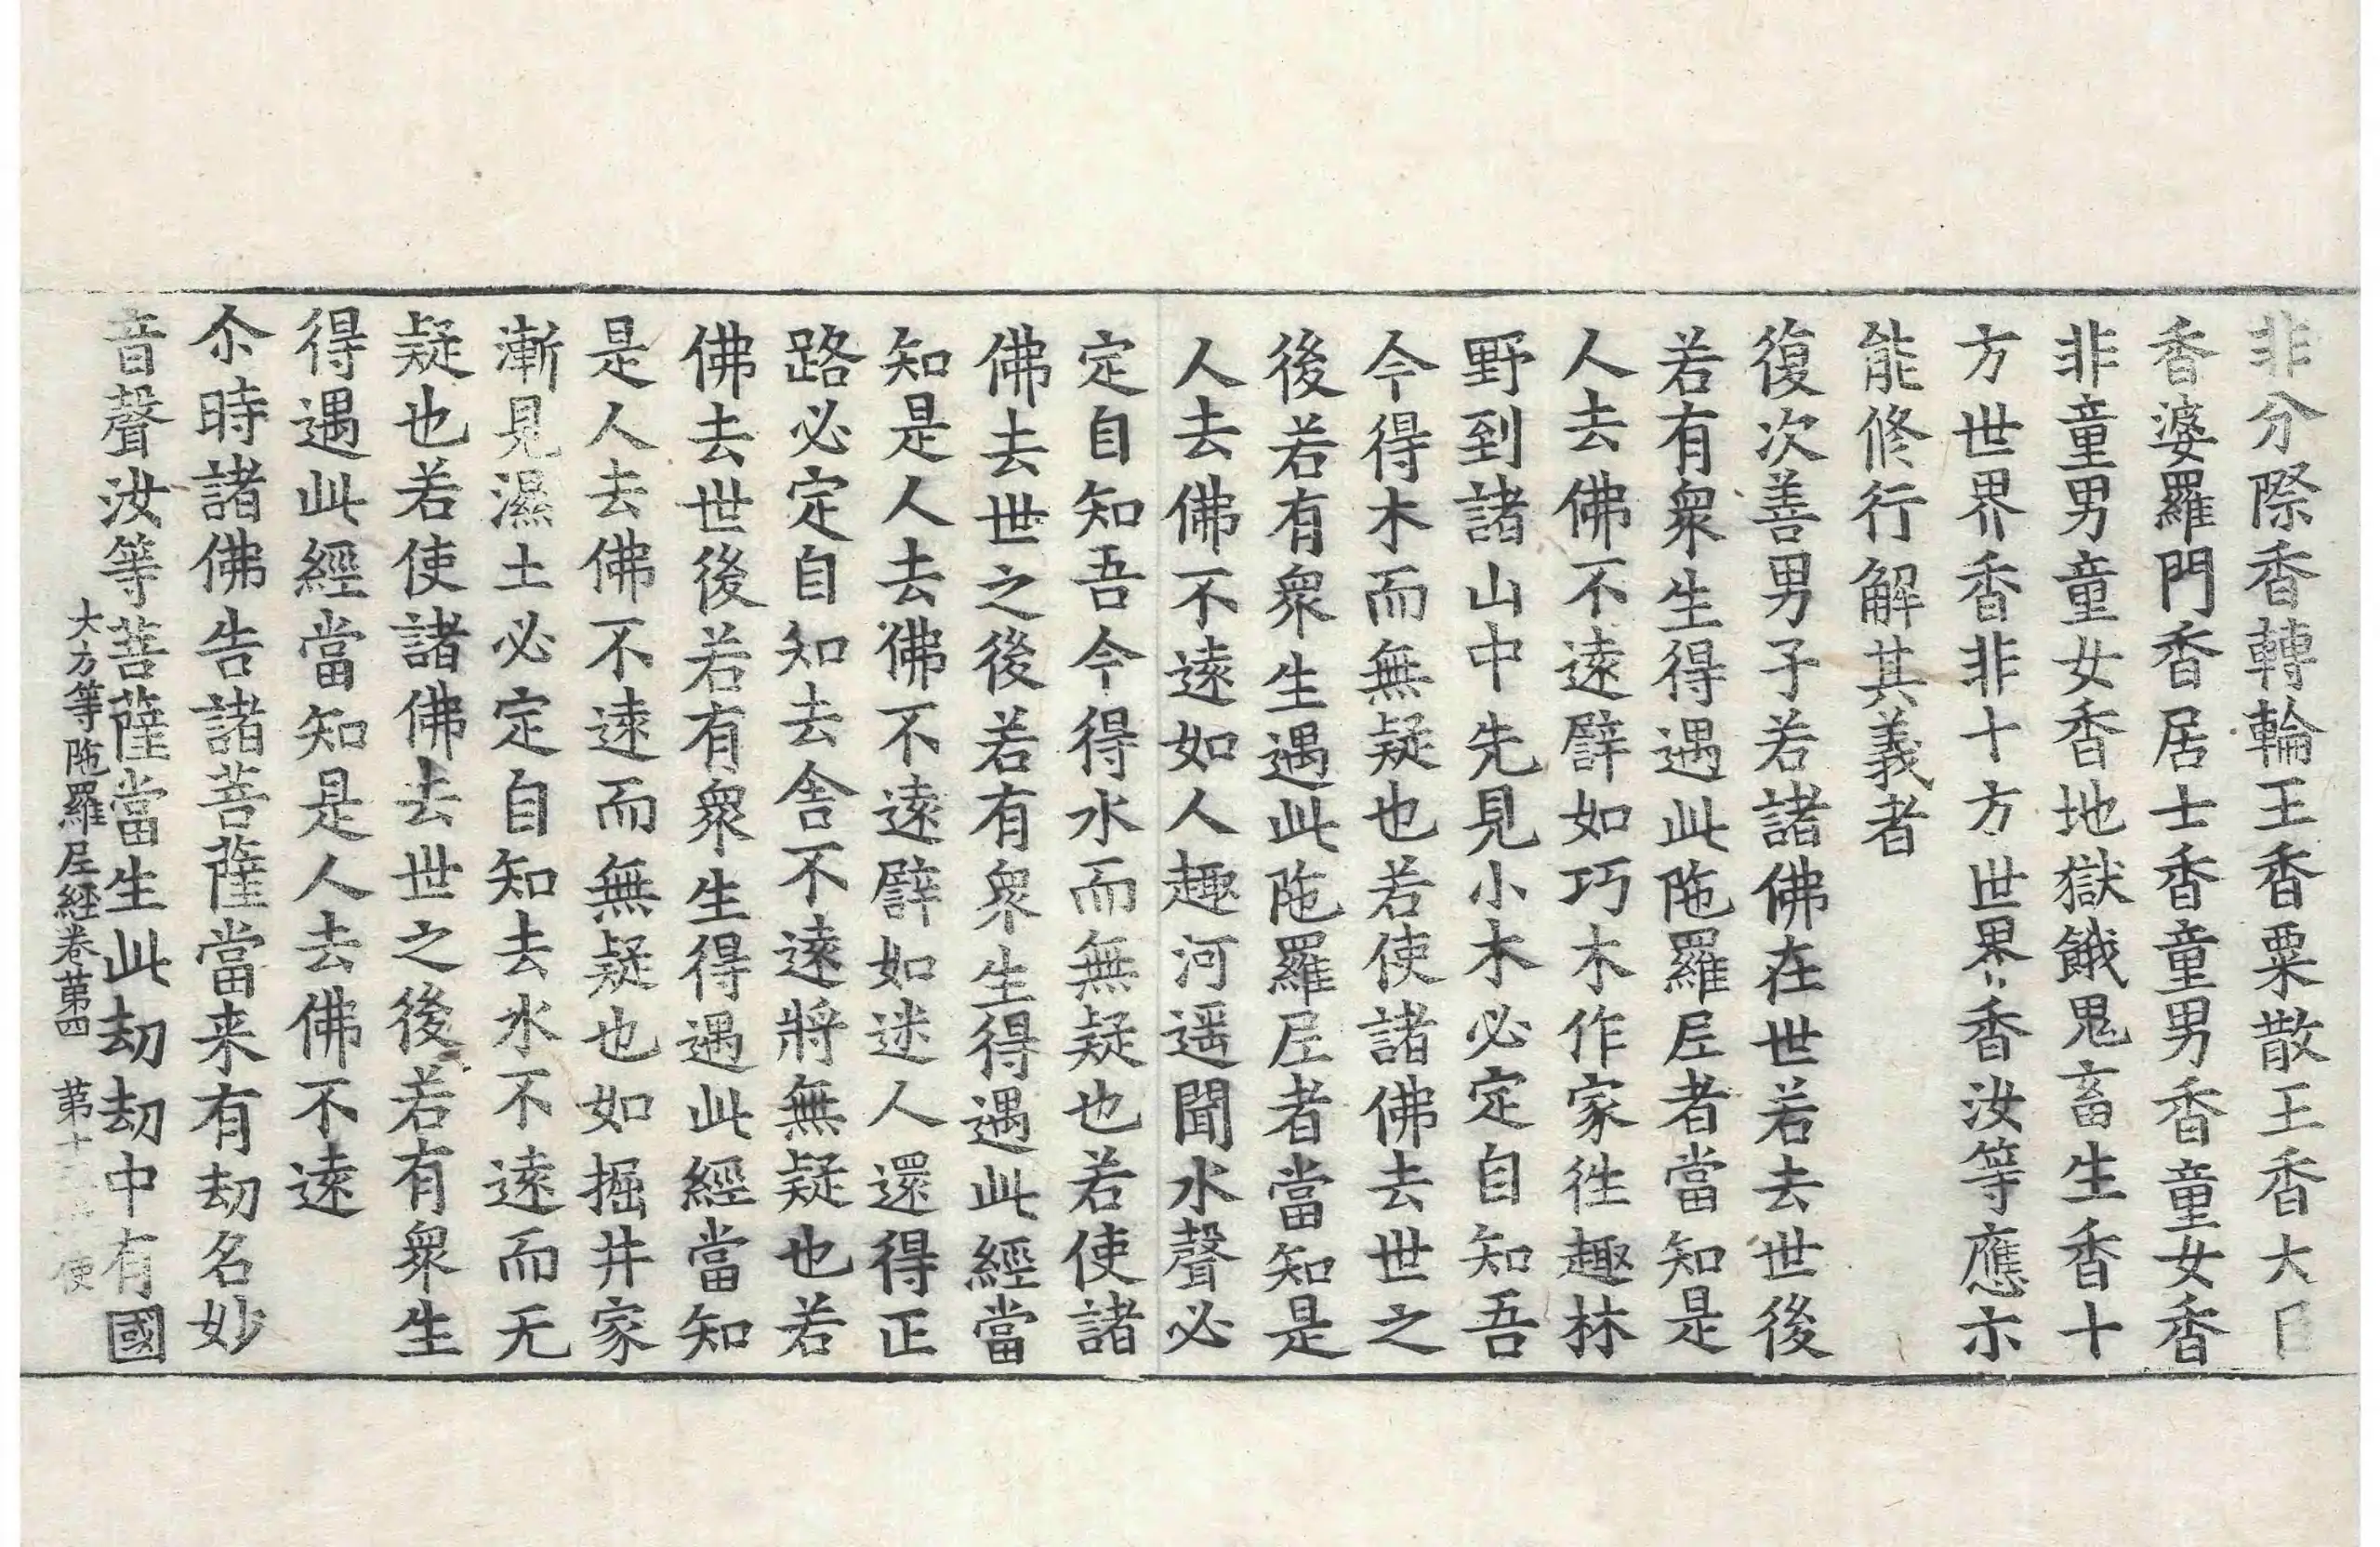 非分際香轉輪王香粟散王香大
香婆羅門香居士香童男香童女香
非童男童女香地獄餓鬼畜生香十
方世界香非十方世界香汝等應亦
能修行解其義者
復次善男子若諸佛在世若去世後
若有衆生得遇此陁羅𡰱者當知是
人去佛不遠譬如巧木作家徃趣林
野到諸山中先見小木必定自知吾
今得木而無疑也若使諸佛去世之
後若有衆生遇此陁羅𡰱者當知是
人去佛不遠如人趣河遥聞水聲必
定自知吾今得水而無疑也若使諸
佛去世之後若有衆生得遇此經當
知是人去佛不遠譬如迷人還得正
路必定自知去舍不遠將無疑也若
佛去世後若有衆生得遇此經當知
是人去佛不遠而無疑也如掘井家
漸見濕土必定自知去水不遠而无
疑也若使諸佛去世之後若有衆生
得遇此經當知是人去佛不遠
尒時諸佛告諸菩薩當来有劫名妙
音聲汝等菩薩當生此劫劫中有國
大方等陁羅𡰱經卷苐四 苐十 使